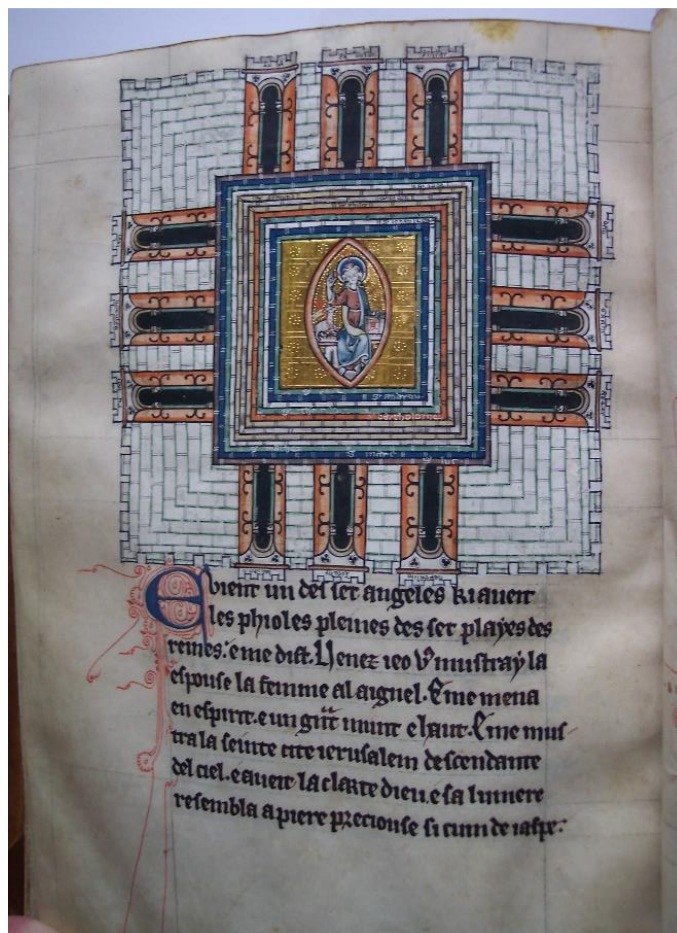 Evient un des set angeles ki aveit
les phioles pleines des set playes des
reines: e me dist. Venez ieo v mustray la
espouse la femme al aignel. E me mena
en espirit. e un gnt munt e haut. E me mus
tra la seinte cite ierusalem descendante
del ciel. e aveit la clarte dieu. e sa lumere
resembla a piere preciouse si cum de iaspe: